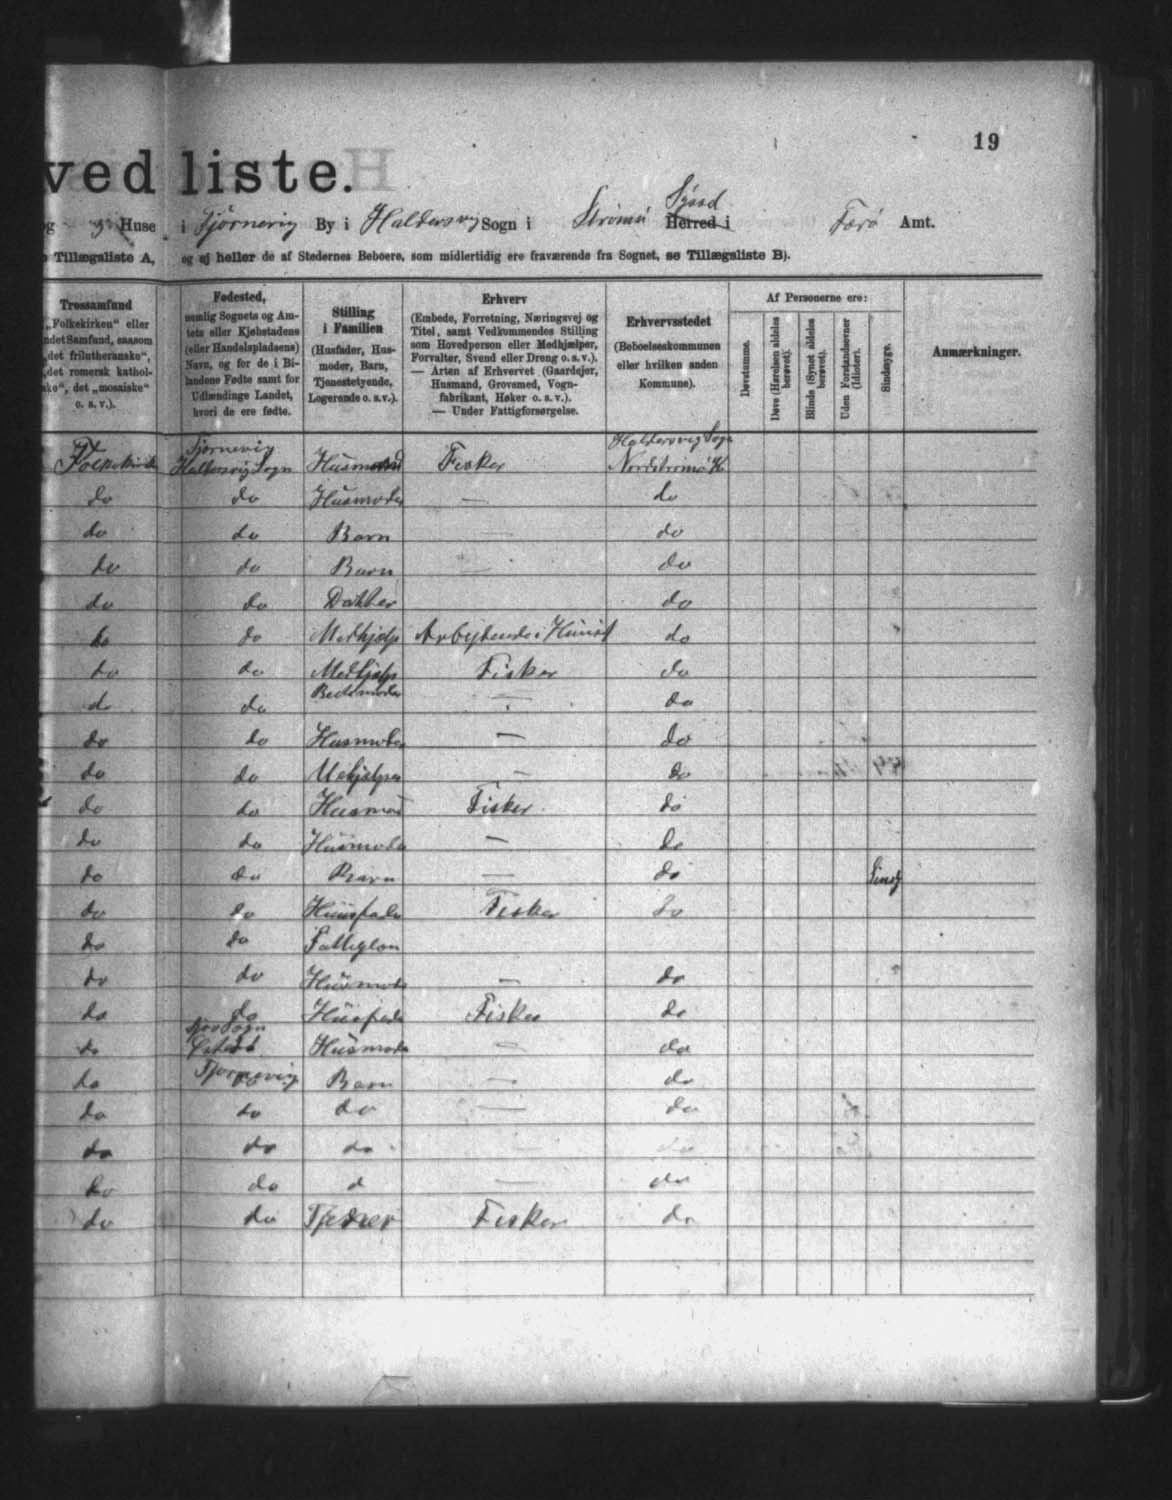 19
ved liste.
Huse i Tjørnevig By i Haldersvig Sogn i Strømø Syssel Herred i Færø Amt.
Tillægsliste A, og ej heller de af Stedernes Beboere, som midlertidig ere fraværende fra Sognet, se Tillægsliste B).
Trossamfund
„Folkekirken“ eller
ndet Samfund, saasom
„det frilutheranske“,
„det romersk kathol-
ske“, det „mosaiske“
o. s. v.).
Fødested,
nemlig Sognets og Am-
tets eller Kjøbstadens
(eller Handelspladsens)
Navn, og for de i Bi-
landene Fødte samt for
Udlændinge Landet,
hvori de ere fødte.
Stilling
i Familien
(Husfader, Hus-
moder, Barn,
Tjenestetyende,
Logerende o. s. v.).
Erhverv
(Embede, Forretning, Næringsvej og
Titel, samt Vedkommendes Stilling
som Hovedperson eller Medhjælper,
Forvalter, Svend eller Dreng o. s. v.).
— Arten af Erhvervet (Gaardejer,
Husmand, Grovsmed, Vogn-
fabrikant, Høker o. s. v.).
— Under Fattigforsørgelse.
Erhvervsstedet
(Beboelseskommunen
eller hvilken anden
Kommune).
Af Personerne ere:
Døvstumme.
Døve (Hørelsen aldeles
berøvet).
Blinde (Synet aldeles
berøvet).
Uden Forstandsevner
(Idioter).
Sindssyge.
Anmærkninger.
Tjørnevig Haldersvig Sogn
Folkekirk Haldersvig Sogn Husmand Fisker Nordstrømø K
do do Husmoder — do
do do Barn — do
do do Barn — do
do do Datter do
do do Medhjælp Arbejdende i Huset do
do do Medhjælp Fisker do
do do Bedstmoder — do
do do Husmoder — do
do do — do
do do Husmand Fisker do
do do Husmoder — do
do do Barn — do Sinds
do do Husfader Fisker do
do do Fattiglem
do do Husmoder — do
do do Husfader Fisker do
Sogn
do Husmoder — do
do Tjørnevig Barn — do
do do do — do
do do do — do
do do d — do
do do Tjener Fisker do